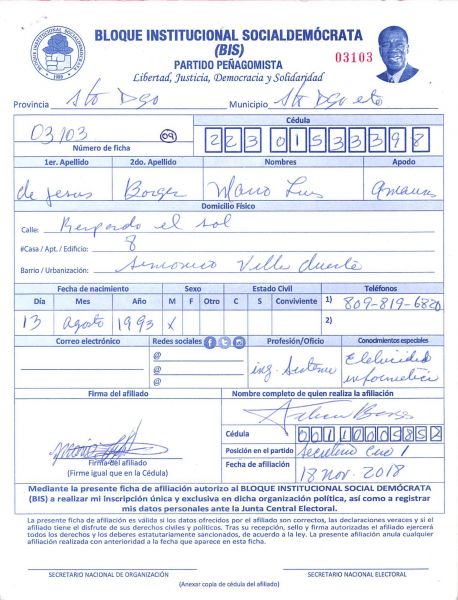 BLOQUE INSTITUCIONAL SOCIALDEMÓCRATA
(BIS)
PARTIDO PEÑAGOMISTA
03103
Libertad, Justicia, Democracia y Solidaridad
Provincia Sto Dgo Municipio Sto Dgo este
03103 09
Número de ficha
Cédula
223 0153339 8
1er. Apellido 2do. Apellido Nombres Apodo
de Jesus Mario Luis
Domicilio Físico
Calle: el sol
#Casa / Apt. / Edificio: 8
Barrio / Urbanización: Villa duarte
Fecha de nacimiento Sexo Estado Civil Teléfonos
Día Mes Año M F Otro C S Conviviente 1) 809-819-6820
13 Agosto 1993 X 2)
Correo electrónico Redes sociales Profesión/Oficio Conocimientos especiales
@
@
@
ing. Sistema
Eletricidad
informatica
Firma del afiliado Nombre completo de quien realiza la afiliación
Firma del afiliado
(Firme igual que en la Cédula)
Cédula 001 1000585 2
Posición en el partido
Fecha de afiliación 18 Nov. 2018
Mediante la presente ficha de afiliación autorizo al BLOQUE INSTITUCIONAL SOCIAL DEMÓCRATA
(BIS) a realizar mi inscripción única y exclusiva en dicha organización política, así como a registrar
mis datos personales ante la Junta Central Electoral.
La presente ficha de afiliación es valida si los datos ofrecidos por el afiliado son correctos, las declaraciones veraces y si el
afiliado tiene el disfrute de sus derechos civiles y políticos. Tras su recepción, sello y firma autorizadas el afiliado ejercerá
todos los derechos y los deberes estatutariamente sancionados, de acuerdo a la ley. La presente afiliación anula cualquier
afiliación realizada con anterioridad a la fecha que aparece en esta ficha.
SECRETARIO NACIONAL DE ORGANIZACIÓN SECRETARIO NACIONAL ELECTORAL
(Anexar copia de cédula del afiliado)